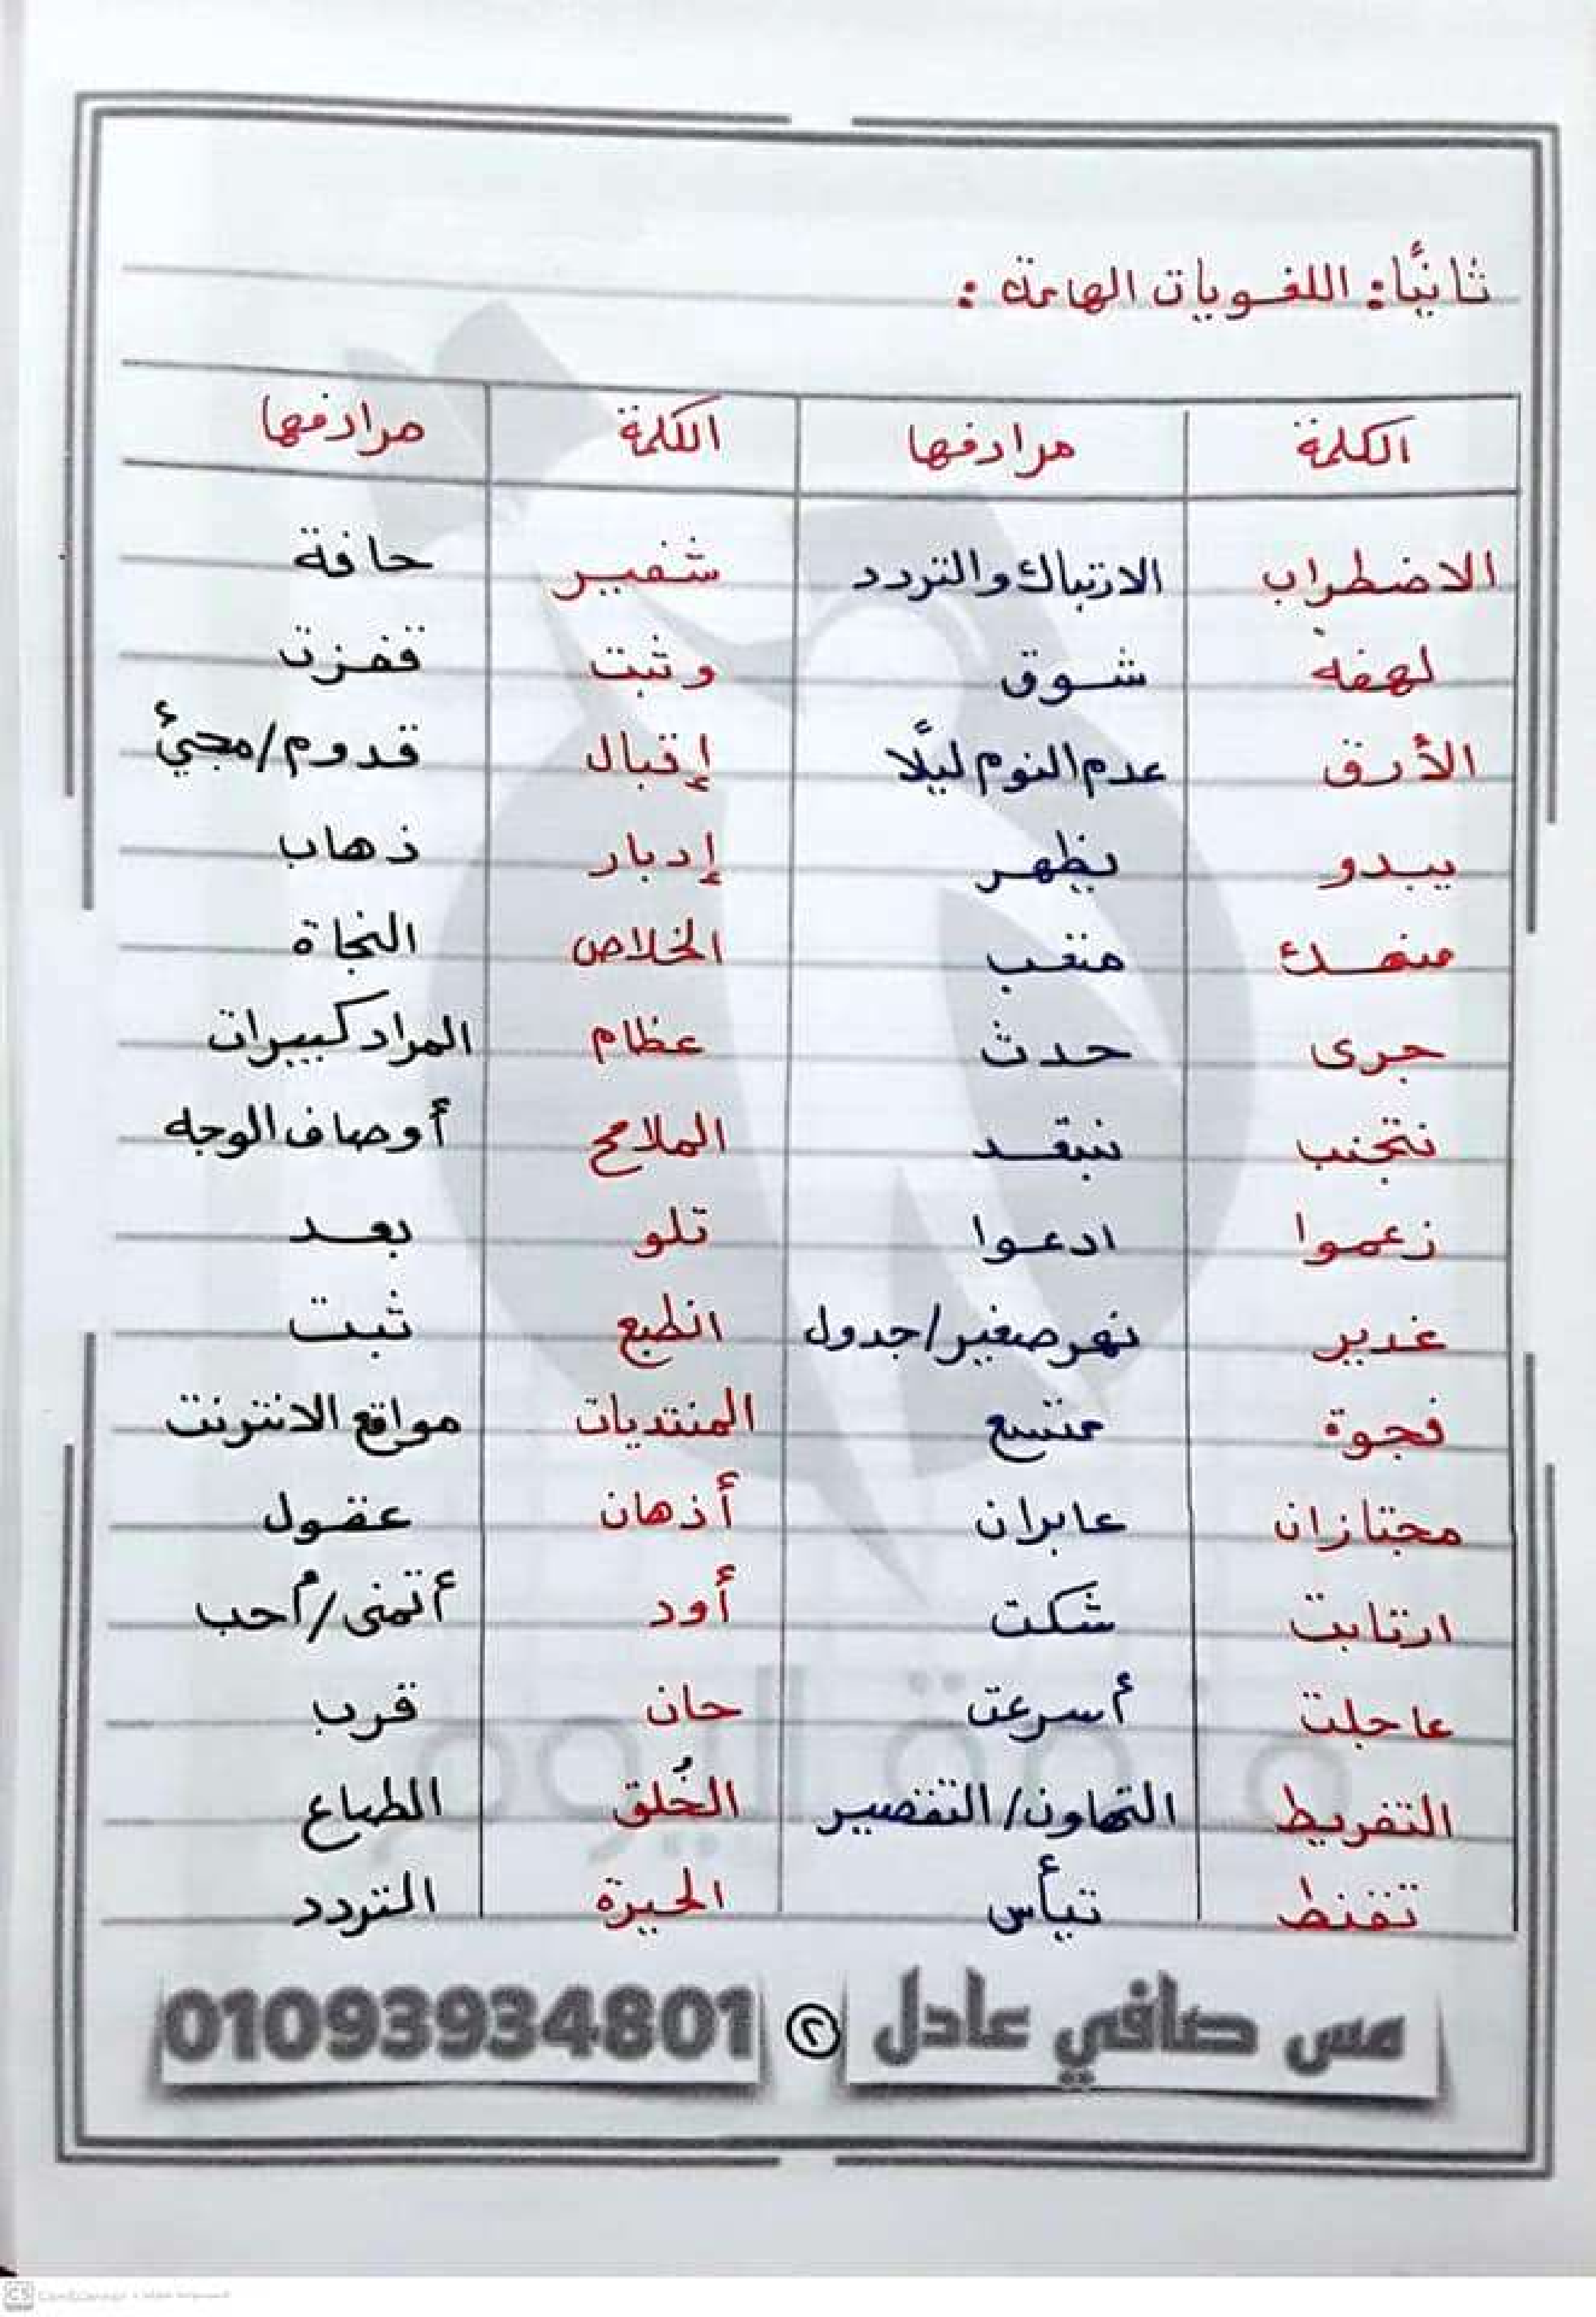 ثانيًا: اللغويات الهامة :
الكلمة مرادفها الكلمة مرادفها
الاضطراب الارتباك والتردد شفير حافة
لهفة شوق وثبت قفزت
الأرق عدم النوم ليلًا إقبال قدوم/مجيئ
يبدو يظهر إدبار ذهاب
منهك متعب الخلاص النجاة
جرى حدث عظام المراد كبيرات
نتجنب نبتعد الملامح أوصاف الوجه
زعموا ادعوا تلو بعد
غدير نهر صغير/جدول انطبع ثبت
فجوة متسع المنتديات مواقع الانترنت
مجتازان عابران أذهان عقول
ارتابت شكت أود أتمنى/أحب
عاجلت أسرعت حان قرب
التفريط التهاون/التقصير الخُلق الطباع
تقنط تيأس الحيرة التردد
مس صافي عادل ٢ 01093934801
CS CamScanner